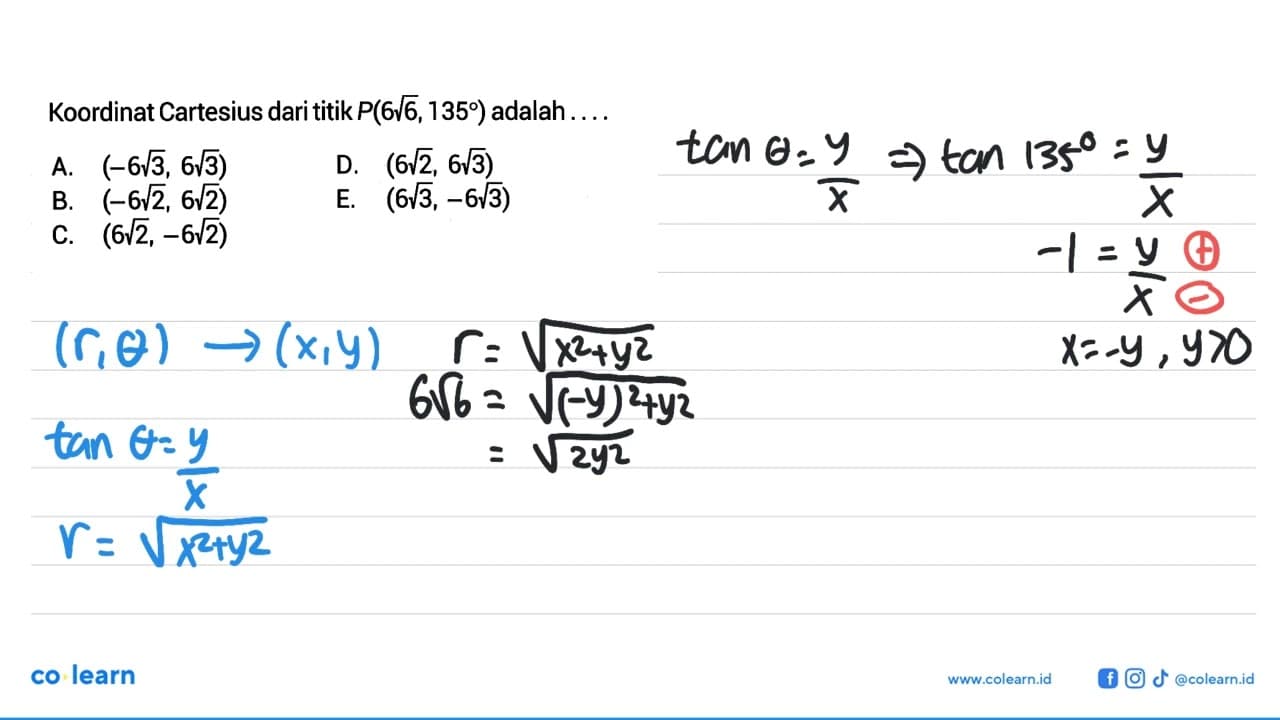 Koordinat Cartesius dari titik P(6√6, 135°) adalah ....
A. (−6√3, 6√3)
B. (−6√2, 6√2)
C. (6√2, −6√2)
D. (6√2, 6√3)
E. (6√3, −6√3)
tan θ = y/x ⇒ tan 135° = y/x
-1 = y/x + -
x = -y, y>0
(r, θ) → (x, y)
tan θ = y/x
r = √x²+y²
r = √x²+y²
6√6 = √(-y)²+y²
= √2y²
co learn
www.colearn.id
@colearn.id